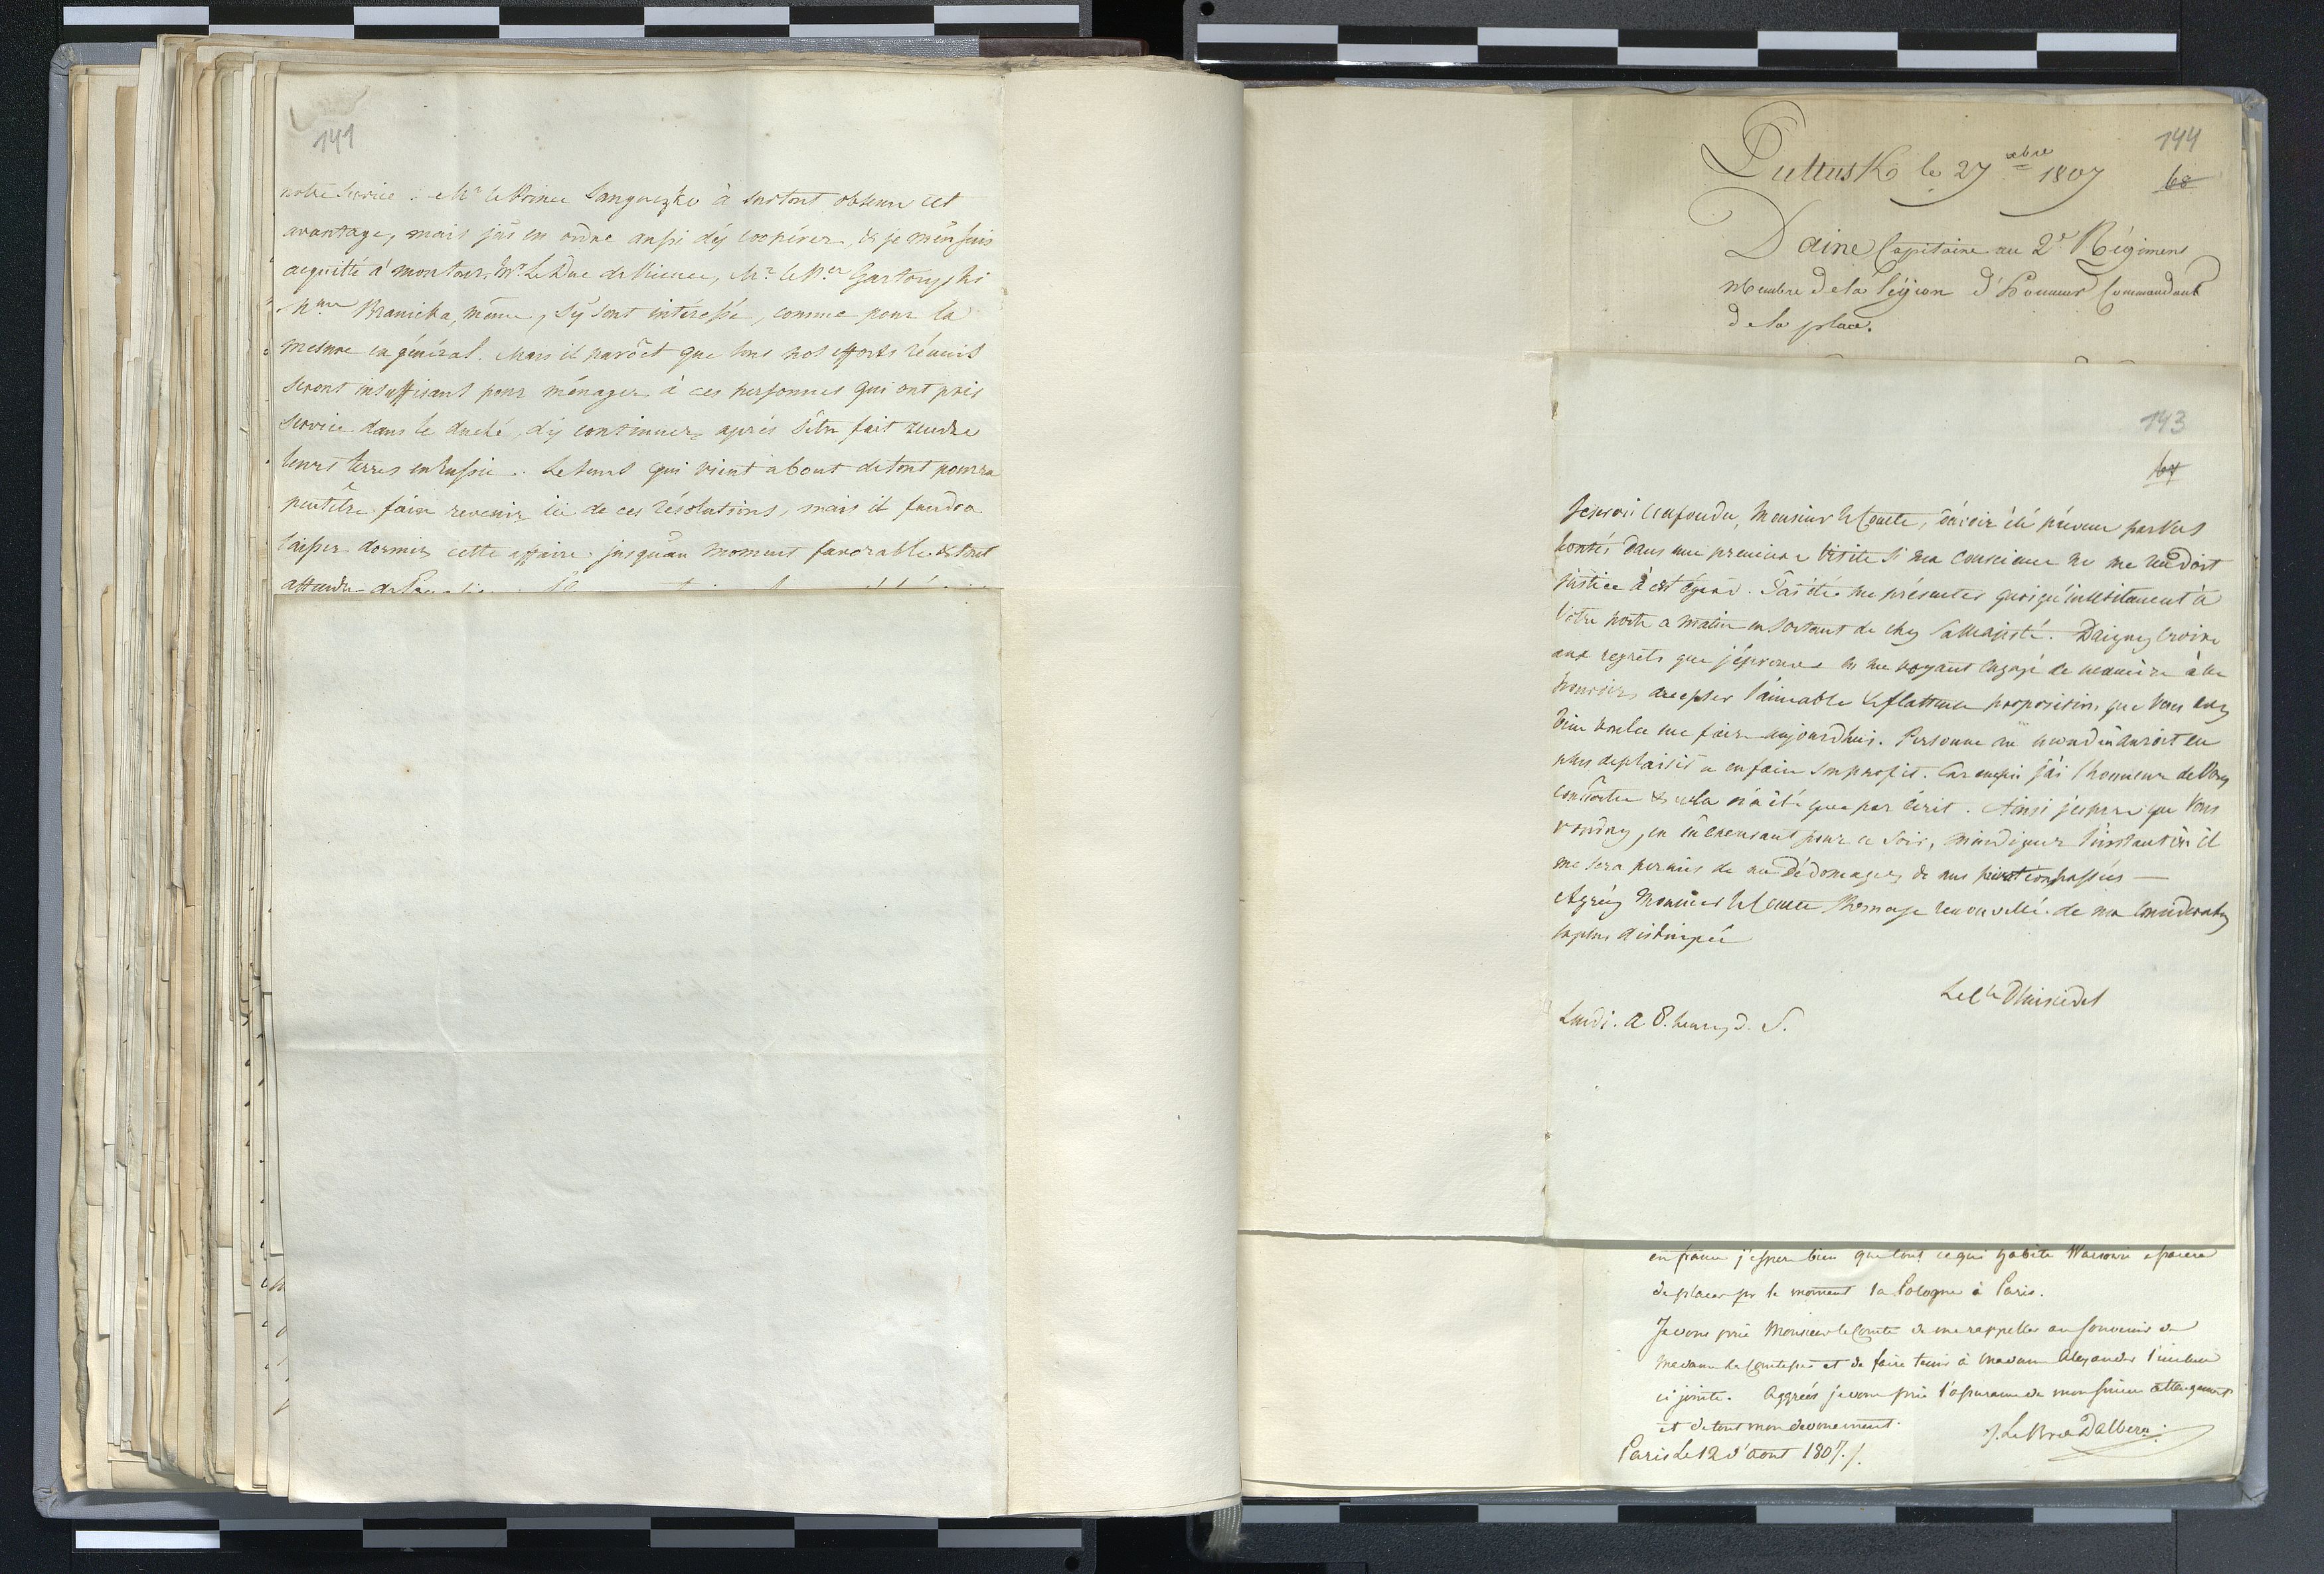 141
notre service. Mr le Prince Sanguszko à surtout obtenu cet
avantage, mais j'us en ordre aussi d'ÿ coopérer, & je m'en suis
acquitté à mon tour. Mr. Le Duc de Vicence, Mr le Pce Czartoryski
Mme Branicka, même, s'ÿ sont intéressé, comme pour la
mesure en général. Mais il paroêt que tous nos efforts réunis
seront insuffisant pour ménager à ces personnes qui ont pris
service dans le duché, d'ÿ continuer après s'être fait rendre
leurs terres en Russie. Le tems qui vient about de tout pourra
peutêtre faire revenir ici de ces résolutions, mais il faudra
laisser dormir cette affaire jusqu'au moment favorable & tout
attendre de
144
Pultusk le 27 xbre 1807
68
Daine Capitaine au 2e Régiment
Membre de la Légion d'Honneur Commandant
de la place.
143
67
Je serai confondu, Monsieur le Comte, d'avoir été prévenu par vos
bontés dans une première visite si ma conscience ne me rendoit
justice à cet égard. J'ai été me présenter quoiqu'inutilement à
votre porte ce matin en sortant de chez Sa Majesté. Daignez croire
aux regrets que j'éprouve en me voyant engagé de manière à ne
pouvoir accepter l'aimable & flatteuse proposition que vous avez
bien voulu me faire aujourdhui. Personne au monde n'auroit eu
plus de plaisir a en faire son profit. Car enfin j'ai l'honneur de vous
connoître & cela n'a été que par écrit. Ainsi j'espere que vous
voudrez, en m'excusant pour ce soir, m'indiquer l'instant où il
me sera permis de me dédomager de mes privations passées —
Agréez Monsieur le Comte l'homage renouvellé de ma consideration
la plus distinguée
Le Cte
Lundi. a 8. heures d. S.
en france j'espere bien que tout ce qui habite Warsovie
de placer pr le moment la Pologne à Paris.
Je vous prie Monsieur le Comte de me rappeller au souvenir de
Madame la Comtesse et de faire tenir à Madame Alexandre l'incluse
ci jointe. Aggréés je vous prie l'assurance de mon sincere attachement
et de tout mon devouement.
J. Le Bron Dalberg.
Paris Le 12 d'aout 1807./.